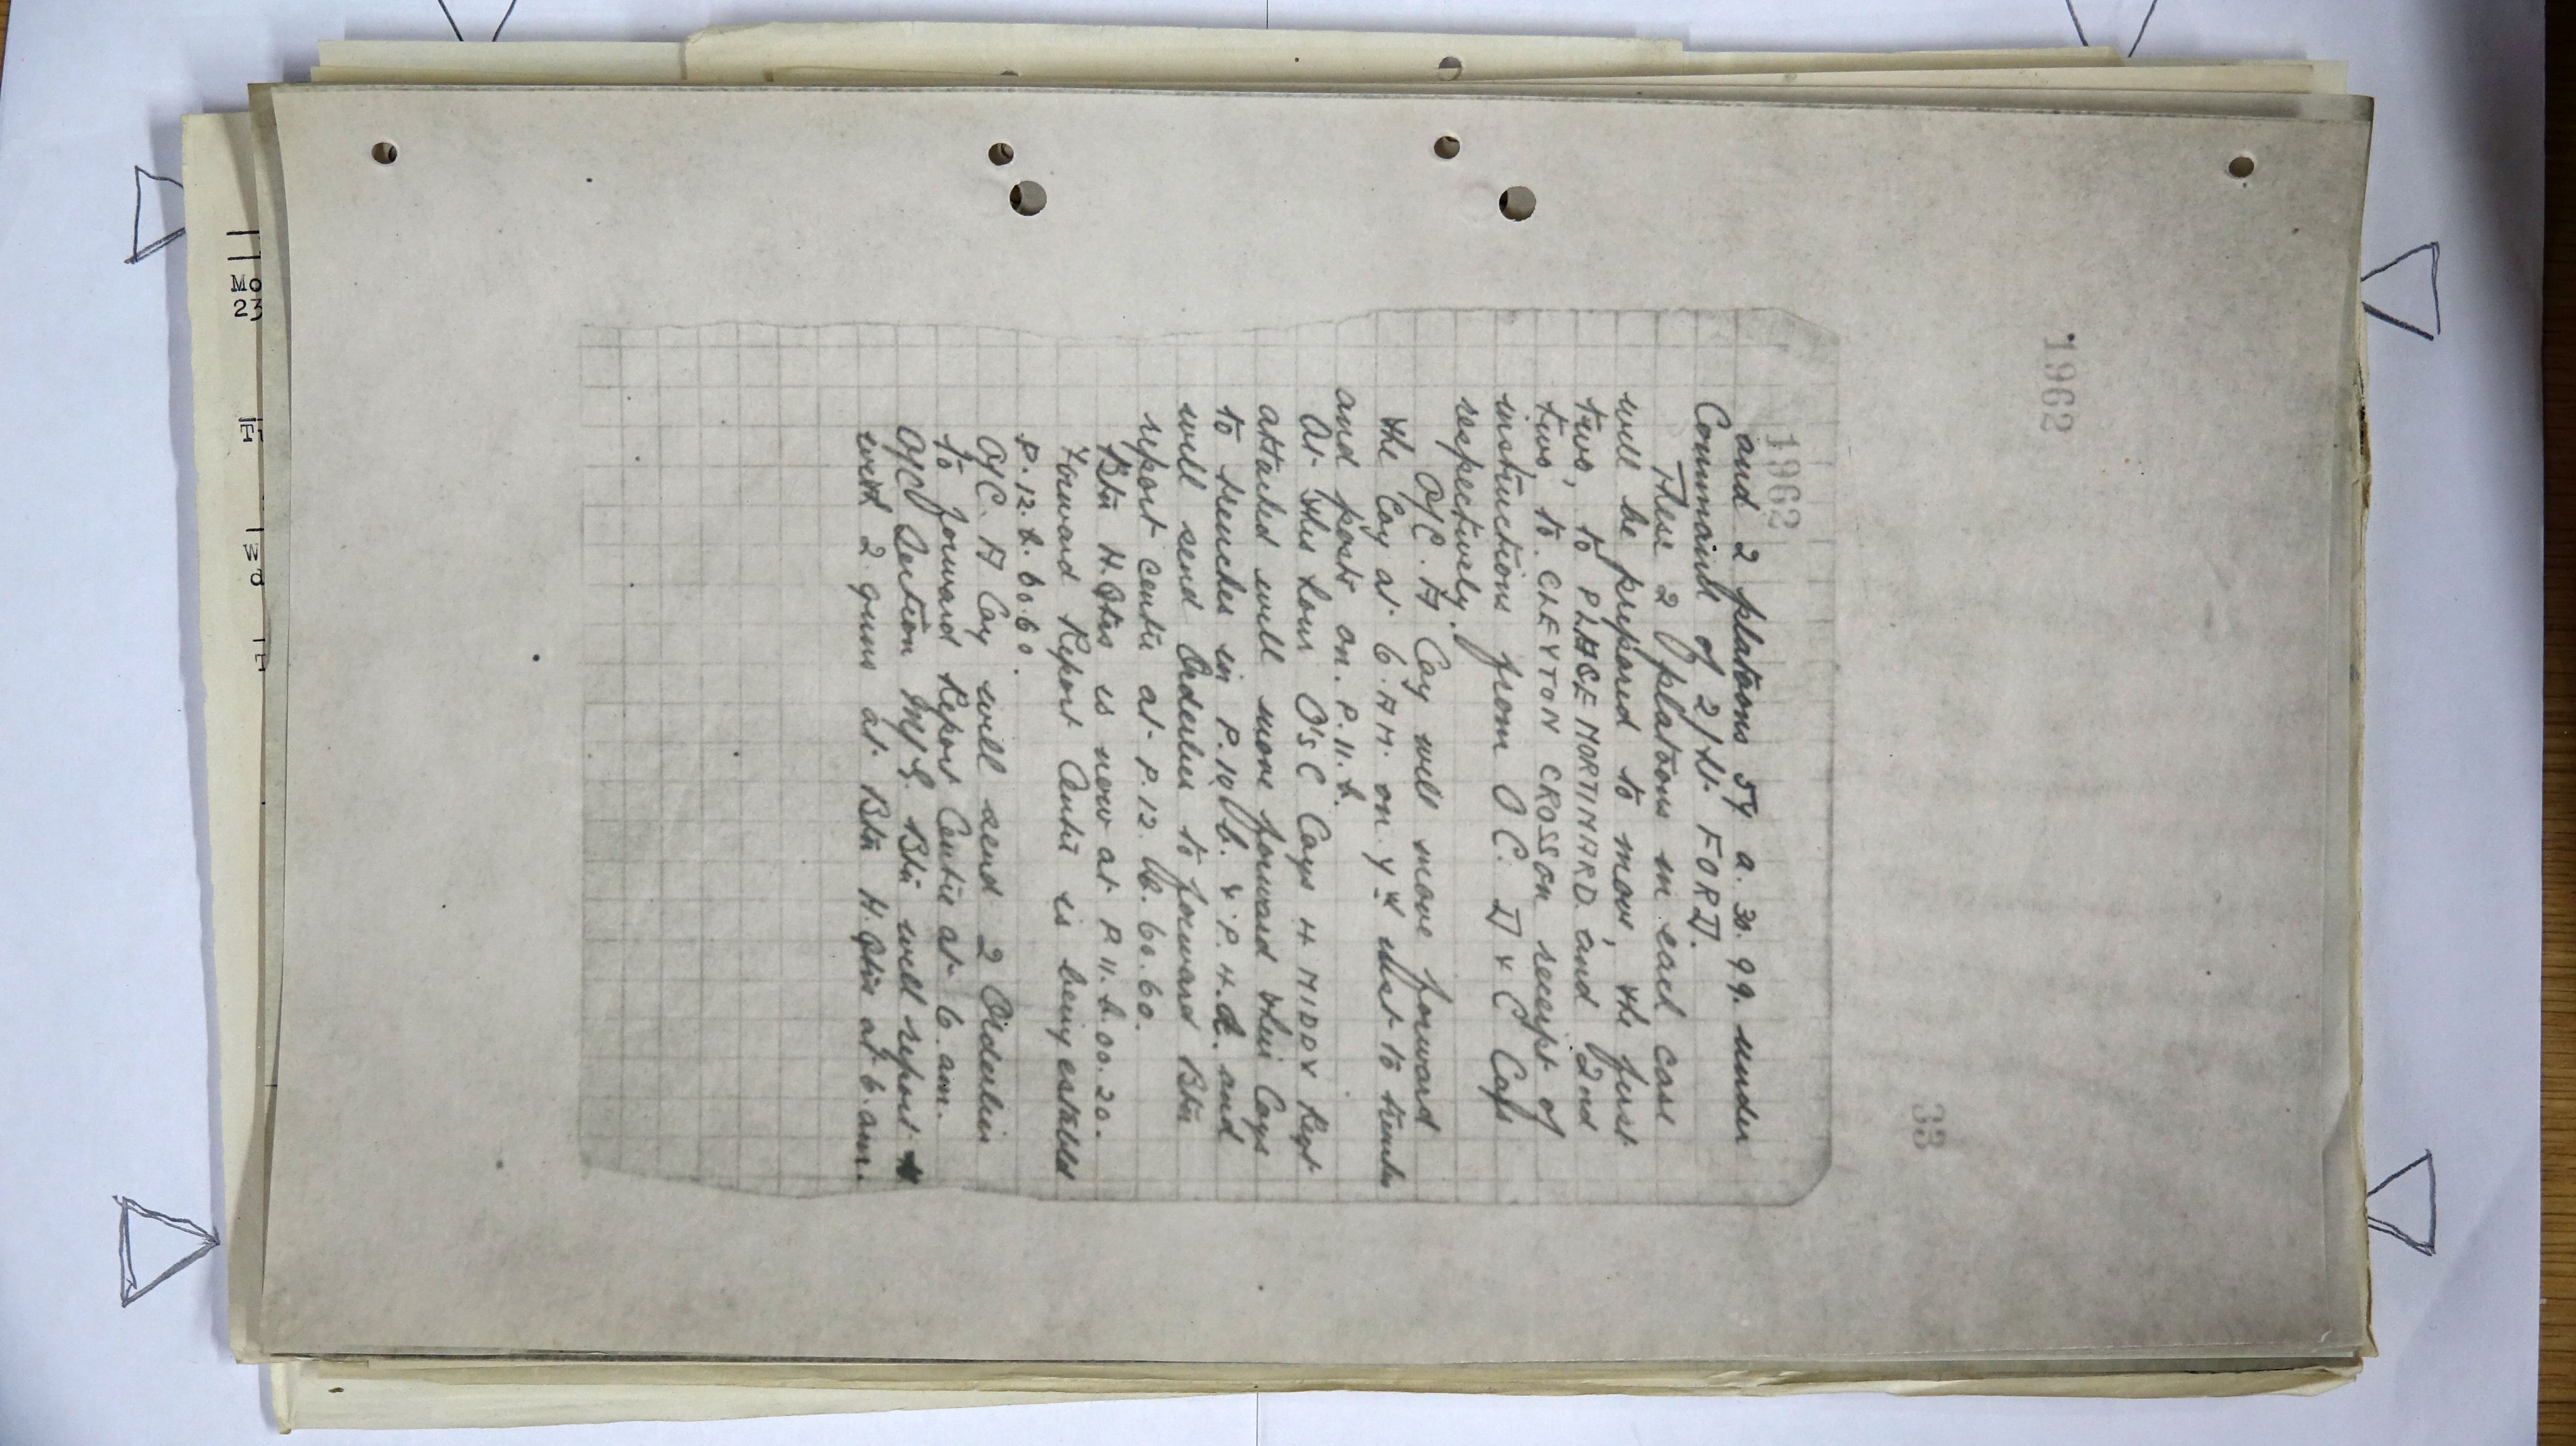 1962
33
1962
and 2 platoons 54 a. 30. 99. under
Command of 2/Lt. FORD.
These 2 platoons in each case
will be prepared to move, the first
two, to PLACE MORTINARD and 2nd
two, to CLEYTON CROSS on receipt of
instructions from O C. D & C Coys
respectively.
O/C. A Coy will move forward
the Coy at 6. AM. on Y
and posts on. P.11.b.
At this hour O's C Coys 4 MIDDX Regt
attached will move forward their Coys
to trenches in P.10.b. & P.4.d. and
will send Orderlies to forward Btn
report centre at P.12. b. 60.60.
Btn H.Qtrs is now at P.11.b.00.20.
Forward Report Centre is being establd
P.12.b.60.60.
O/C. A Coy will send 2 Orderlies
to forward Report Centre at 6.am.
O/C Section M/G. Btn will report
with 2 guns at Btn H.Qtrs at 6.am.
Mo
23